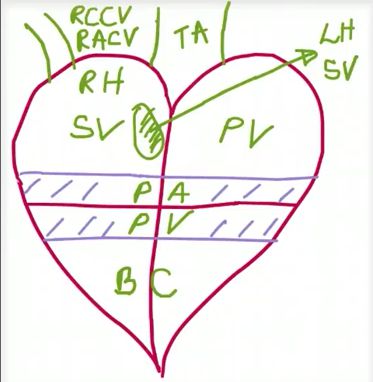 RCCV
RACV
TA
LH
SV
RH
SV
PV
PA
PV
BC